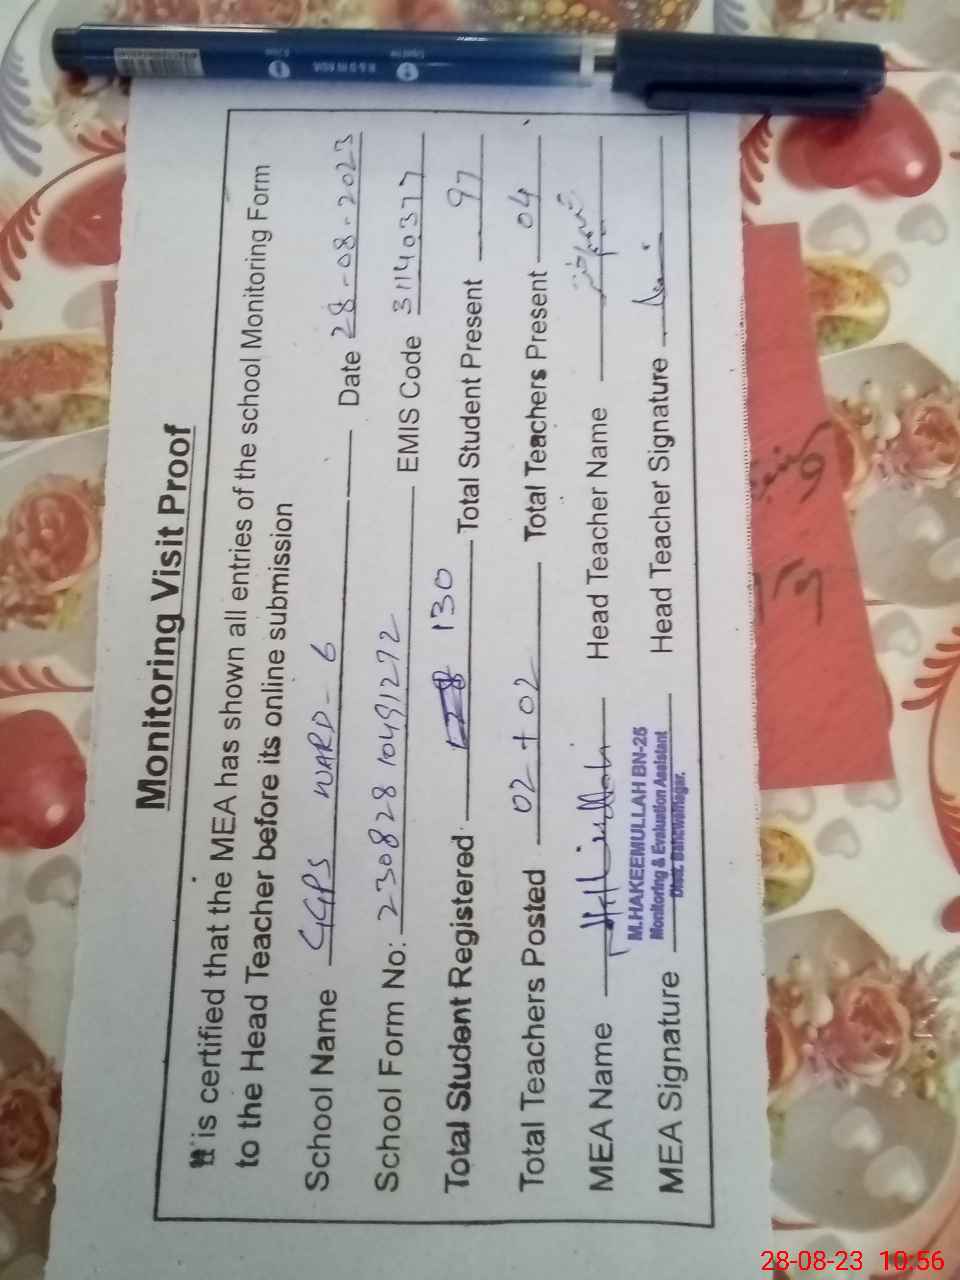 Monitoring Visit Proof
It is certified that the MEA has shown all entries of the school Monitoring Form
to the Head Teacher before its online submission
School Name GGPS WARD-6 Date 28-08-2023
School Form No: 23082810491272 EMIS Code 31140377
Total Student Registered 130 Total Student Present 97
Total Teachers Posted 02 + 02 Total Teachers Present 04
MEA Name Head Teacher Name
M.HAKEEMULLAH BN-25
Monitoring & Evaluation Assistant
Distt. Bahawalnagar.
MEA Signature Head Teacher Signature
28-08-23 10:56